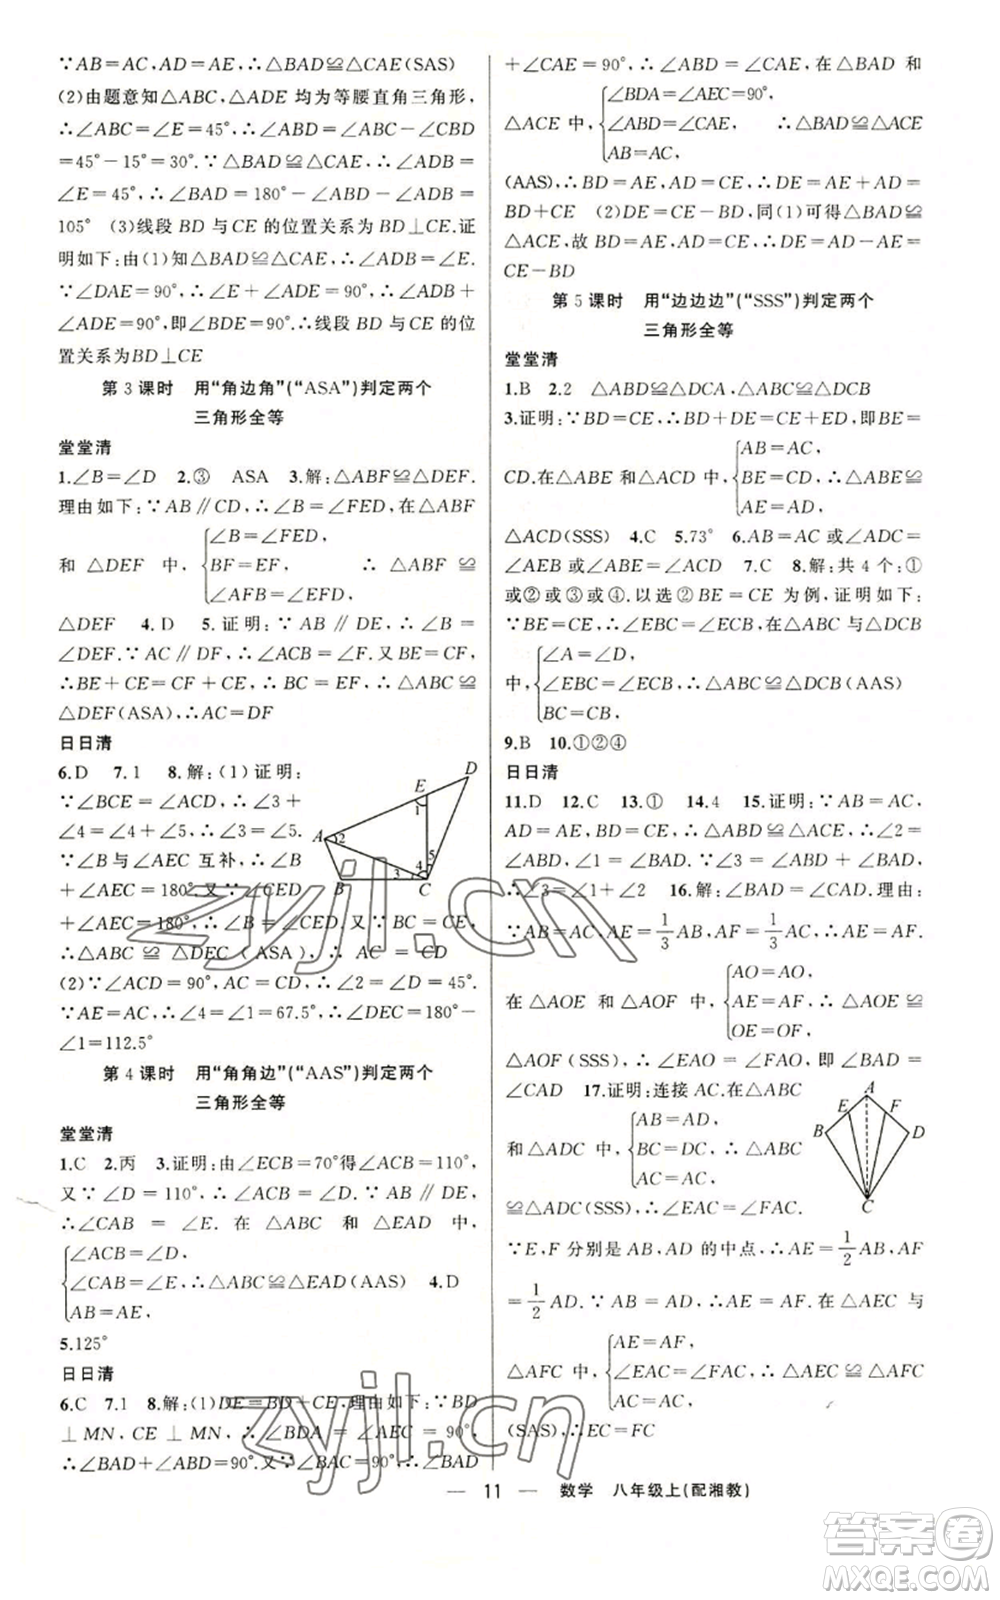 ∵AB=AC,AD=AE,∴△BAD≌△CAE(SAS)
(2)由题意知△ABC,△ADE 均为等腰直角三角形,
∴∠ABC=∠E=45°,∴∠ABD=∠ABC-∠CBD
=45°-15°=30°.∵△BAD≌△CAE,∴∠ADB=
∠E=45°,∴∠BAD=180°-∠ABD-∠ADB=
105° (3)线段 BD 与 CE 的位置关系为 BD⊥CE.证
明如下:由(1)知△BAD≌△CAE,∴∠ADB=∠E.
∵∠DAE=90°,∴∠E+∠ADE=90°,∴∠ADB+
∠ADE=90°,即∠BDE=90°∴线段 BD 与 CE 的位
置关系为 BD⊥CE
第 3 课时 用“角边角”(“ASA”)判定两个
三角形全等
堂堂清
1.∠B=∠D 2.③ ASA 3.解:△ABF≌△DEF.
理由如下:∵AB∥CD,∴∠B=∠FED,在△ABF
∠B=∠FED,
和 △DEF 中, BF=EF, ∴ △ABF ≌
∠AFB=∠EFD,
△DEF 4.D 5.证明:∵AB∥DE,∴∠B=
∠DEF.∵AC∥DF,∴∠ACB=∠F.又∵BE=CF,
∴BE+CE=CF+CE,∴BC=EF,∴△ABC≌
△DEF(ASA),∴AC=DF
日日清
6.D 7.1 8.解:(1)证明:
∵∠BCE=∠ACD,∴∠3+
∠4=∠4+∠5,∴∠3=∠5.
∵∠B 与∠AEC 互补,∴∠B
+∠AEC=180°.又∵∠CED
+∠AEC=180°,
∴∠B=∠CED.又∵BC=CE,
∴△ABC≌△DEC(ASA),∴AC=CD
(2)∵∠ACD=90°,AC=CD,∴∠2=∠D=45°.
∵AE=AC,∴∠4=∠1=67.5°,∴∠DEC=180°-
∠1=112.5°
D
E
1
A
2
4
5
3
B
C
第 4 课时 用“角角边”(“AAS”)判定两个
三角形全等
堂堂清
1.C 2.丙 3.证明:由∠ECB=70°得∠ACB=110°,
又∵∠D=110°,∴∠ACB=∠D.∵AB∥DE,
∴∠CAB=∠E.在 △ABC 和 △EAD 中,
∠ACB=∠D,
∠CAB=∠E,∴△ABC≌△EAD(AAS) 4.D
AB=AE,
5.125°
日日清
6.C 7.1 8.解:(1)DE=BD+CE,理由如下:∵BD
⊥MN,CE⊥MN,∴∠BDA=∠AEC=90°,
∴∠BAD+∠ABD=90°.又∵∠BAC=90°,∴∠BAD
+∠CAE=90°,∴∠ABD=∠CAE,在△BAD 和
∠BDA=∠AEC=90°,
△ACE 中, ∠ABD=∠CAE, ∴△BAD≌△ACE
AB=AC,
(AAS),∴BD=AE,AD=CE,∴DE=AE+AD=
BD+CE (2)DE=CE-BD,同(1)可得△ABD≌
△ACE,故 BD=AE,AD=CE,∴DE=AD-AE=
CE-BD
第 5 课时 用“边边边”(“SSS”)判定两个
三角形全等
堂堂清
1.B 2.2 △ABD≌△DCA,△ABC≌△DCB
3.证明:∵BD=CE,∴BD+DE=CE+ED,即BE=
AB=AC,
CD.在△ABE 和△ACD 中, BE=CD, ∴△ABE≌
AE=AD,
△ACD(SSS) 4.C 5.73° 6.AB=AC或∠ADC=
∠AEB或∠ABE=∠ACD 7.C 8.解:共4个:①
或②或③或④.以选②BE=CE为例,证明如下:
∵BE=CE,∴∠EBC=∠ECB,在△ABC与△DCB
∠A=∠D,
中, ∠EBC=∠ECB,∴△ABC≌△DCB(AAS)
BC=CB,
9.B 10.①②④
日日清
11.D 12.C 13.① 14.4 15.证明:∵AB=AC,
AD=AE,BD=CE,∴△ABD≌△ACE,∴∠2=
∠ABD,∠1=∠BAD.∵∠3=∠BAD+∠ABD,
∴∠3=∠1+∠2 16.解:∠BAD=∠CAD.理由:
∵AB=AC,AE=1/3AB,AF=1/3AC,∴AE=AF.
AO=AO,
在△AOE 和△AOF 中, AE=AF,∴△AOE≌
OE=OF,
△AOF(SSS),∴∠EAO=∠FAO,即∠BAD=
∠CAD 17.证明:连接 AC.在△ABC
AB=AD,
和△ADC 中, BC=DC,∴△ABC
AC=AC,
≌△ADC(SSS),∴∠EAC=∠FAC.
∵E,F 分别是 AB,AD 的中点,∴AE=1/2AB,AF
=1/2AD.∵AB=AD,∴AE=AF.在△AEC 与
AE=AF,
△AFC 中, ∠EAC=∠FAC,∴△AEC≌△AFC
AC=AC,
(SAS),∴EC=FC
A
E
F
B
D
C
— 11 — 数学 八年级上(配湘教)
zyjl.cn
zyjl.cn
答案卷
MXQE.COM